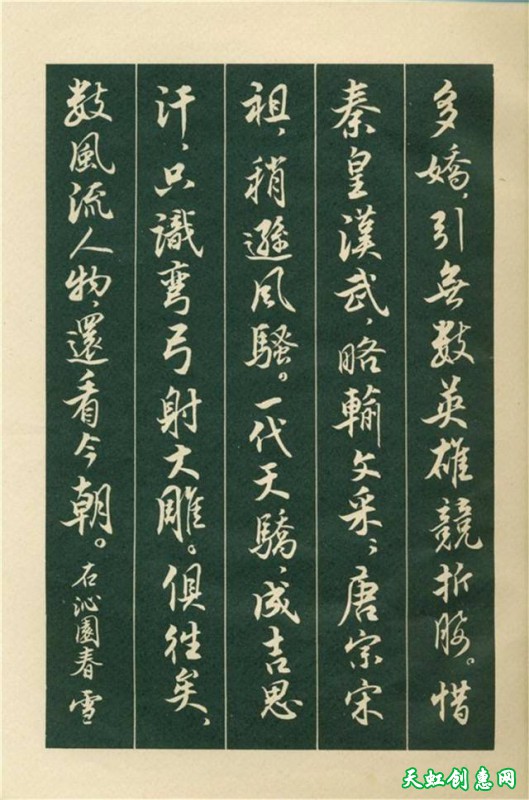 多嬌，引無数英雄競折腰。惜
秦皇漢武，略輸文采；唐宗宋
祖，稍遜風騷。一代天驕，成吉思
汗，只識彎弓射大雕。俱往矣，
数風流人物，還看今朝。右沁園春 雪
天虹创惠网